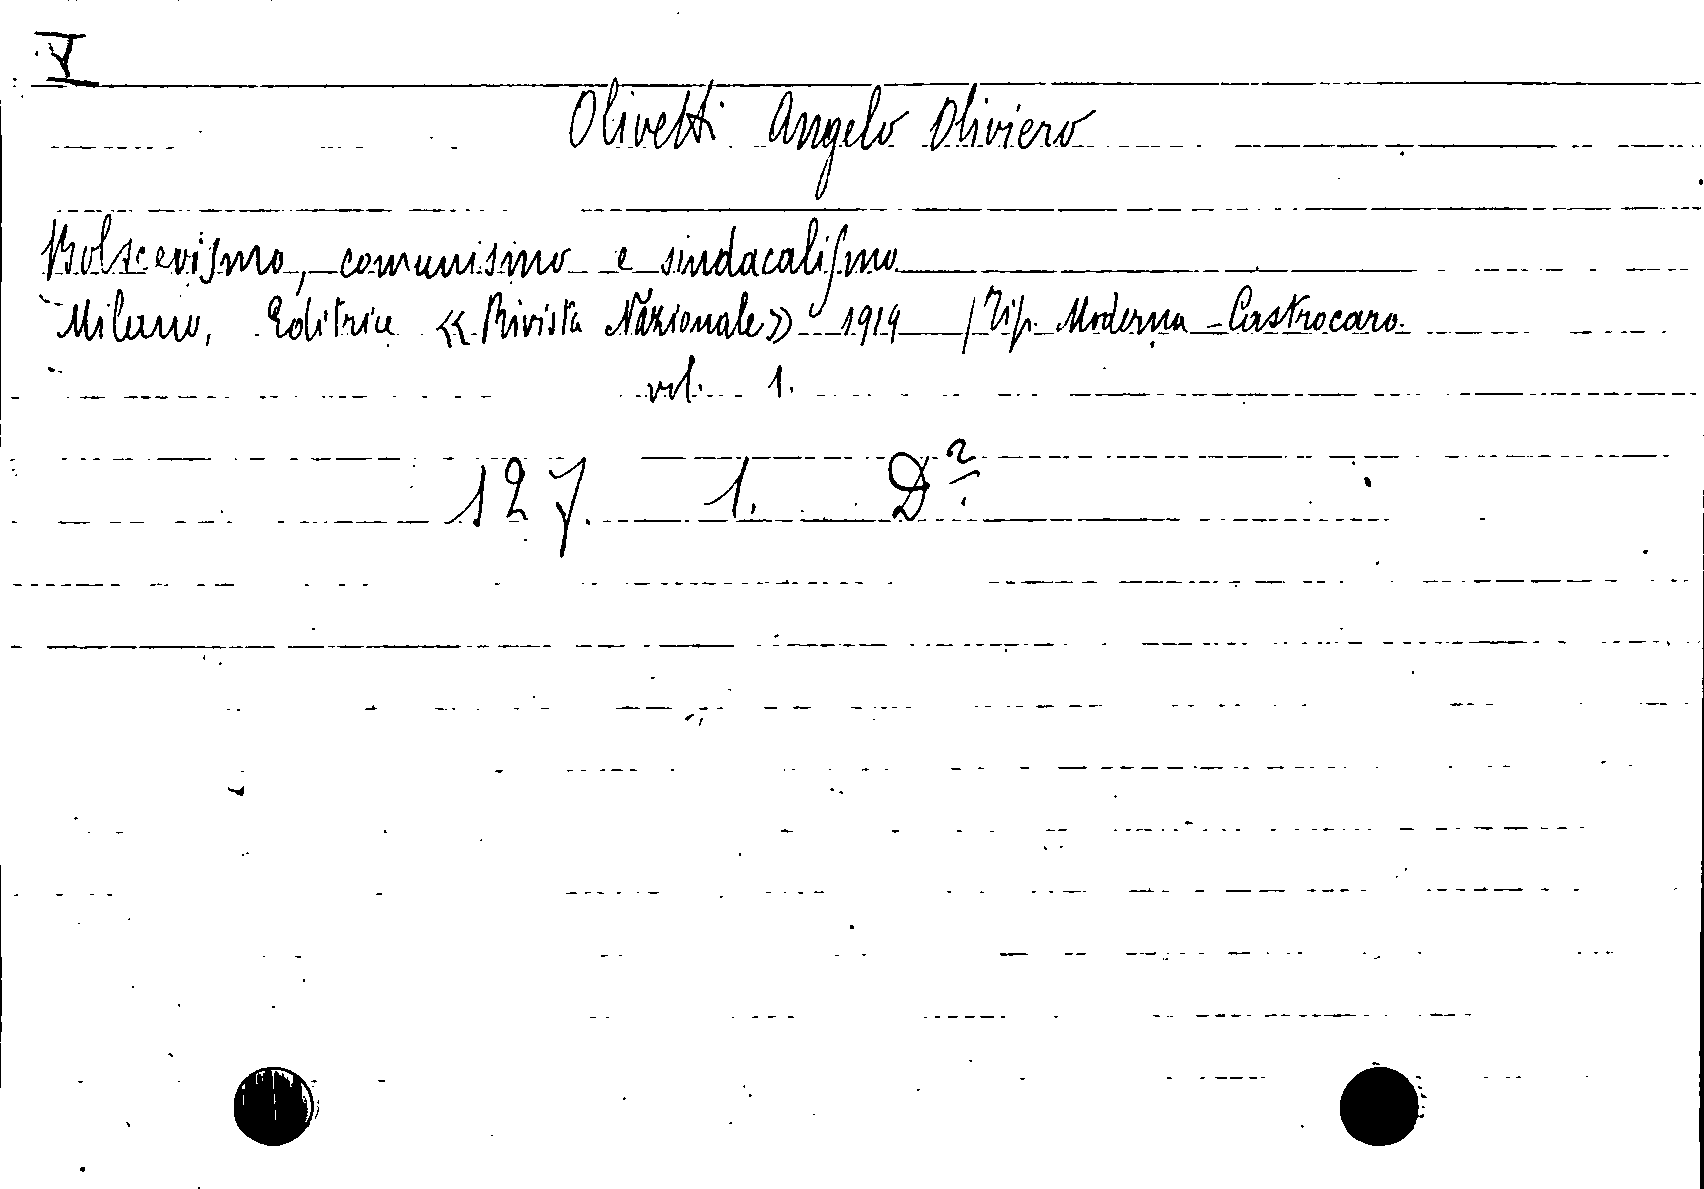 V
Olivetti Angelo Oliviero
Bolscevismo, comunismo e sindacalismo
Milano, Editrice « Rivista Nazionale » 1919 / Tip. Moderna - Castrocaro.
vol. 1.
127. 1. D²